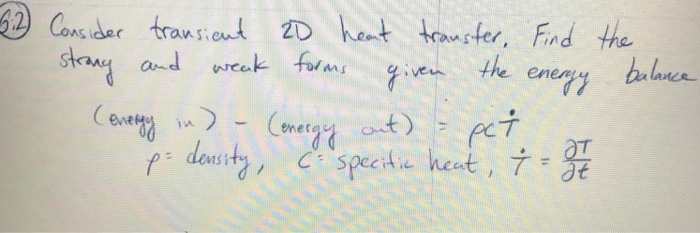 6.2) Consider transient 2D heat transfer. Find the
strong and weak forms given the energy balance
(energy in) - (energy out) = ρcṪ
ρ = density, C = specific heat, Ṫ = ∂T/∂t